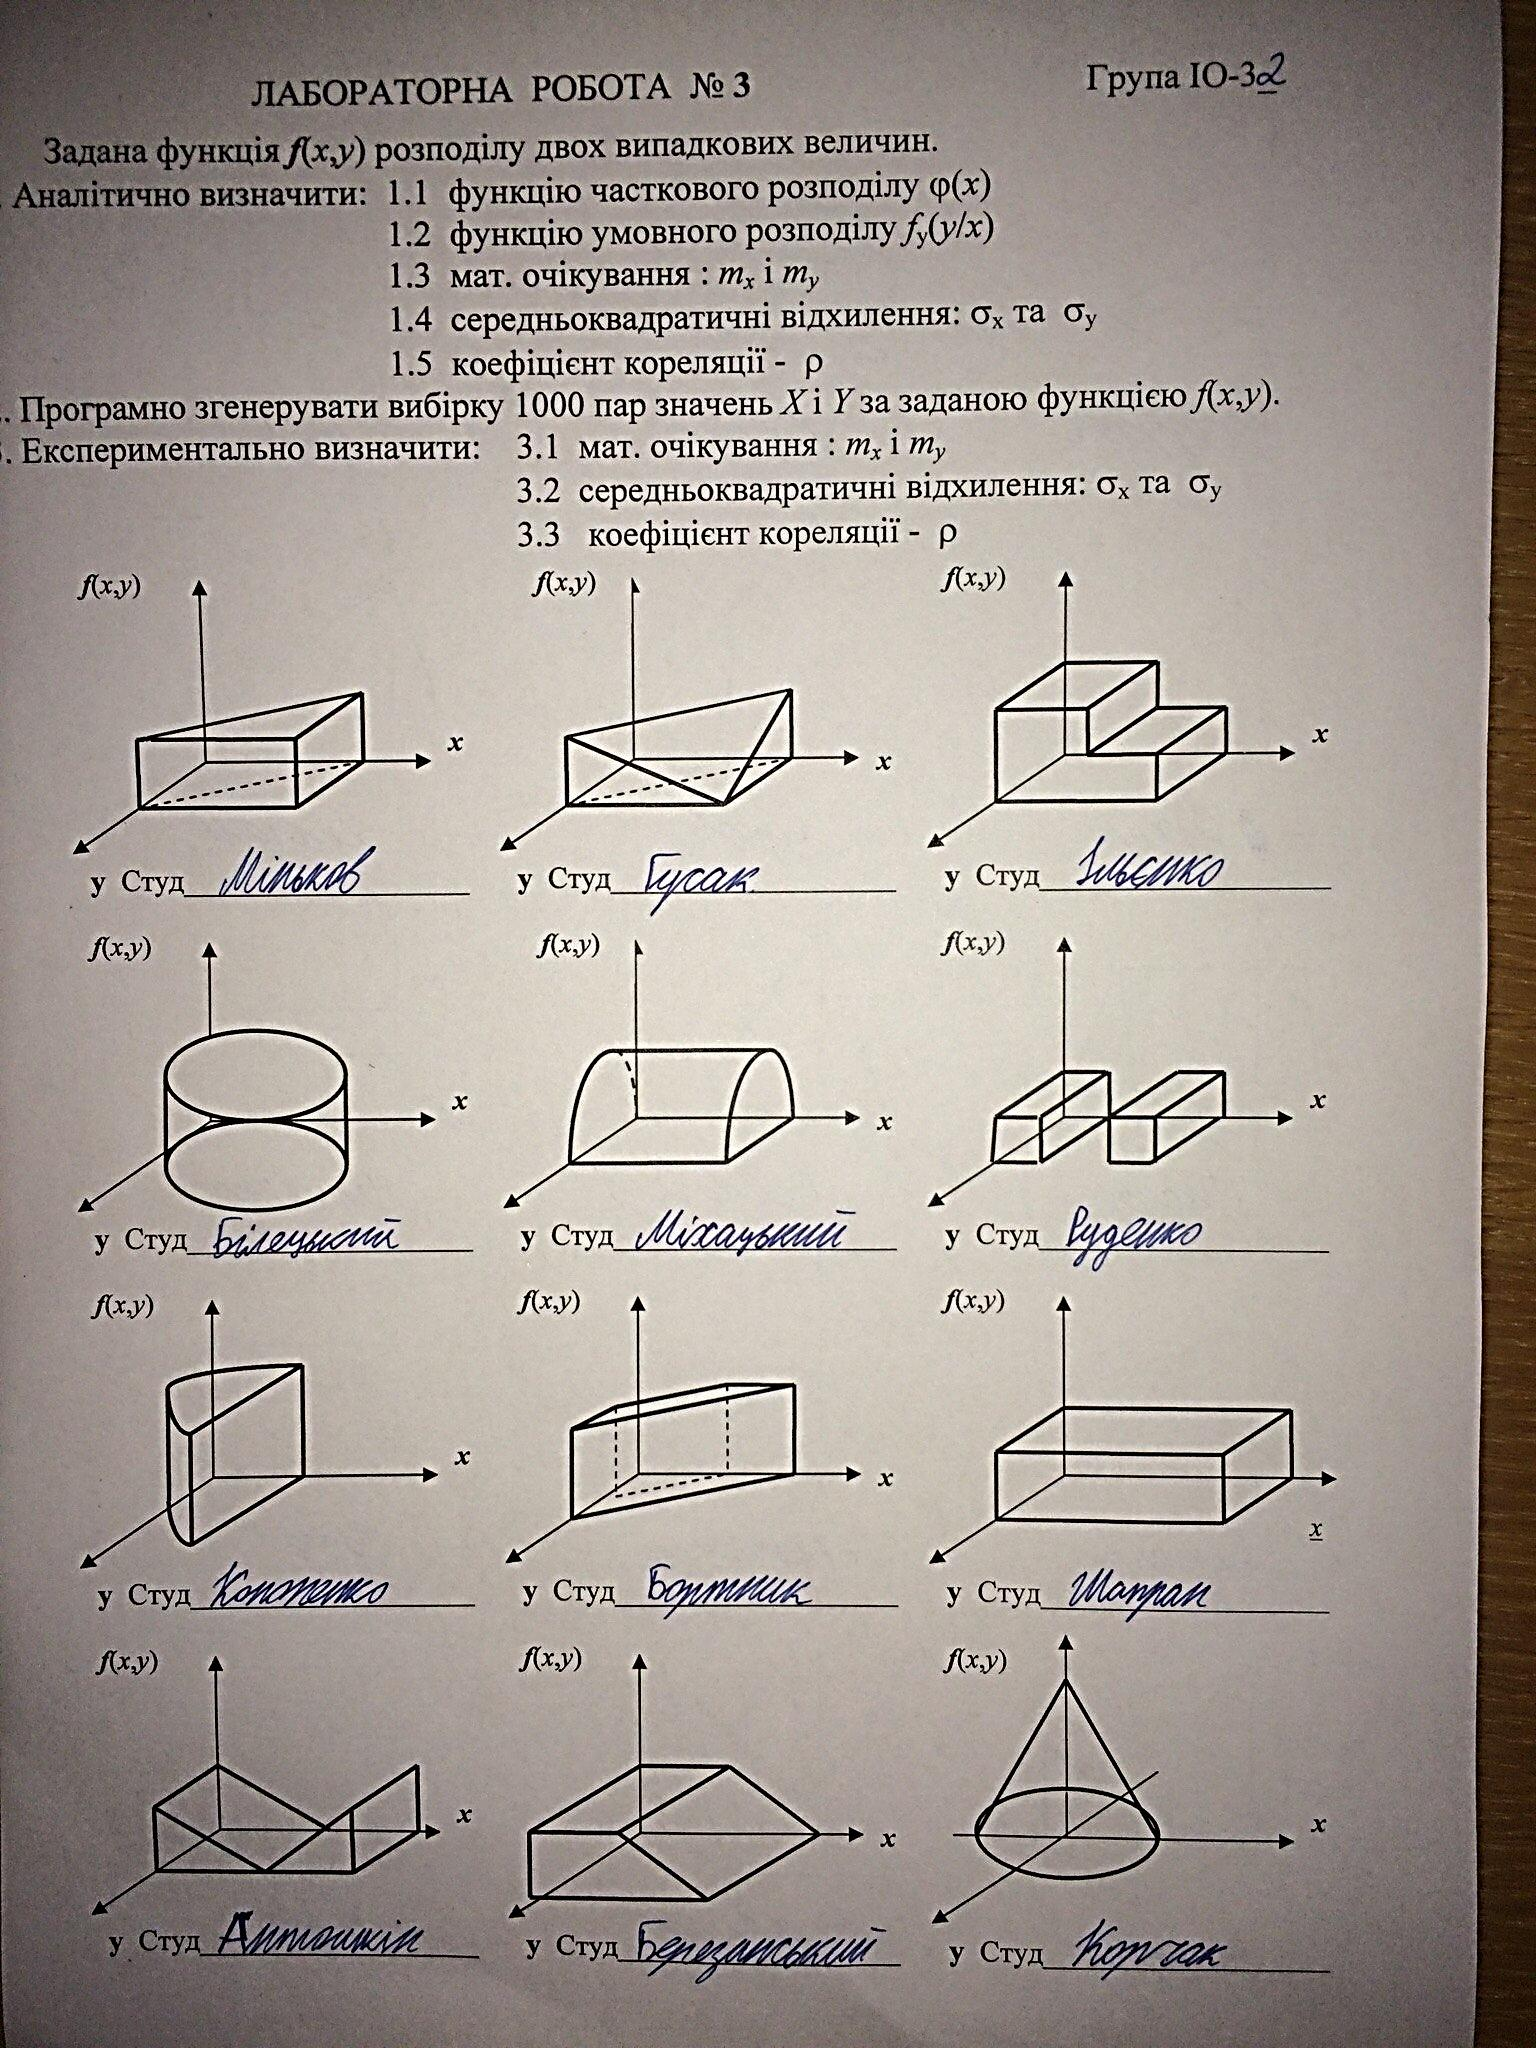 ЛАБОРАТОРНА РОБОТА № 3
Група ІО-32
Задана функція f(x,y) розподілу двох випадкових величин.
. Аналітично визначити: 1.1 функцію часткового розподілу φ(x)
1.2 функцію умовного розподілу fy(y/x)
1.3 мат. очікування : mx і my
1.4 середньоквадратичні відхилення: σx та σy
1.5 коефіцієнт кореляції - ρ
. Програмно згенерувати вибірку 1000 пар значень X і Y за заданою функцією f(x,y).
. Експериментально визначити: 3.1 мат. очікування : mx і my
3.2 середньоквадратичні відхилення: σx та σy
3.3 коефіцієнт кореляції - ρ
f(x,y) f(x,y) f(x,y)
x x x
y Студ Міньков y Студ Гусак y Студ Ільєнко
f(x,y) f(x,y) f(x,y)
x x x
y Студ Білецький y Студ Міхацький y Студ Руденко
f(x,y) f(x,y) f(x,y)
x x x
y Студ Кононенко y Студ Бортник y Студ Шапран
f(x,y) f(x,y) f(x,y)
x x x
y Студ Антошкін y Студ Березанський y Студ Корчак